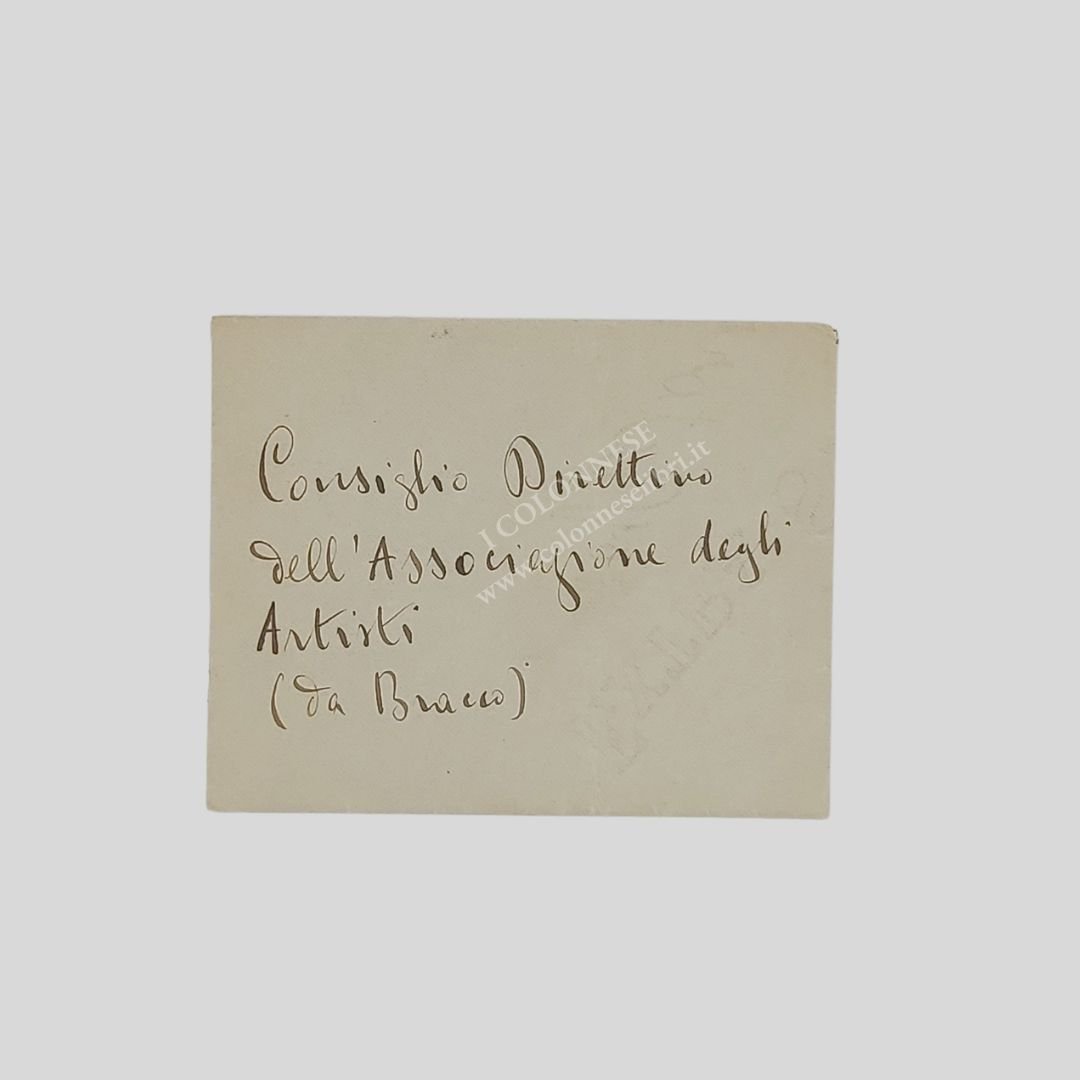 Consiglio Direttivo
dell'Associazione degli
Artisti
(da Bracco)
I COLONNESE
www.colonneseffori.it